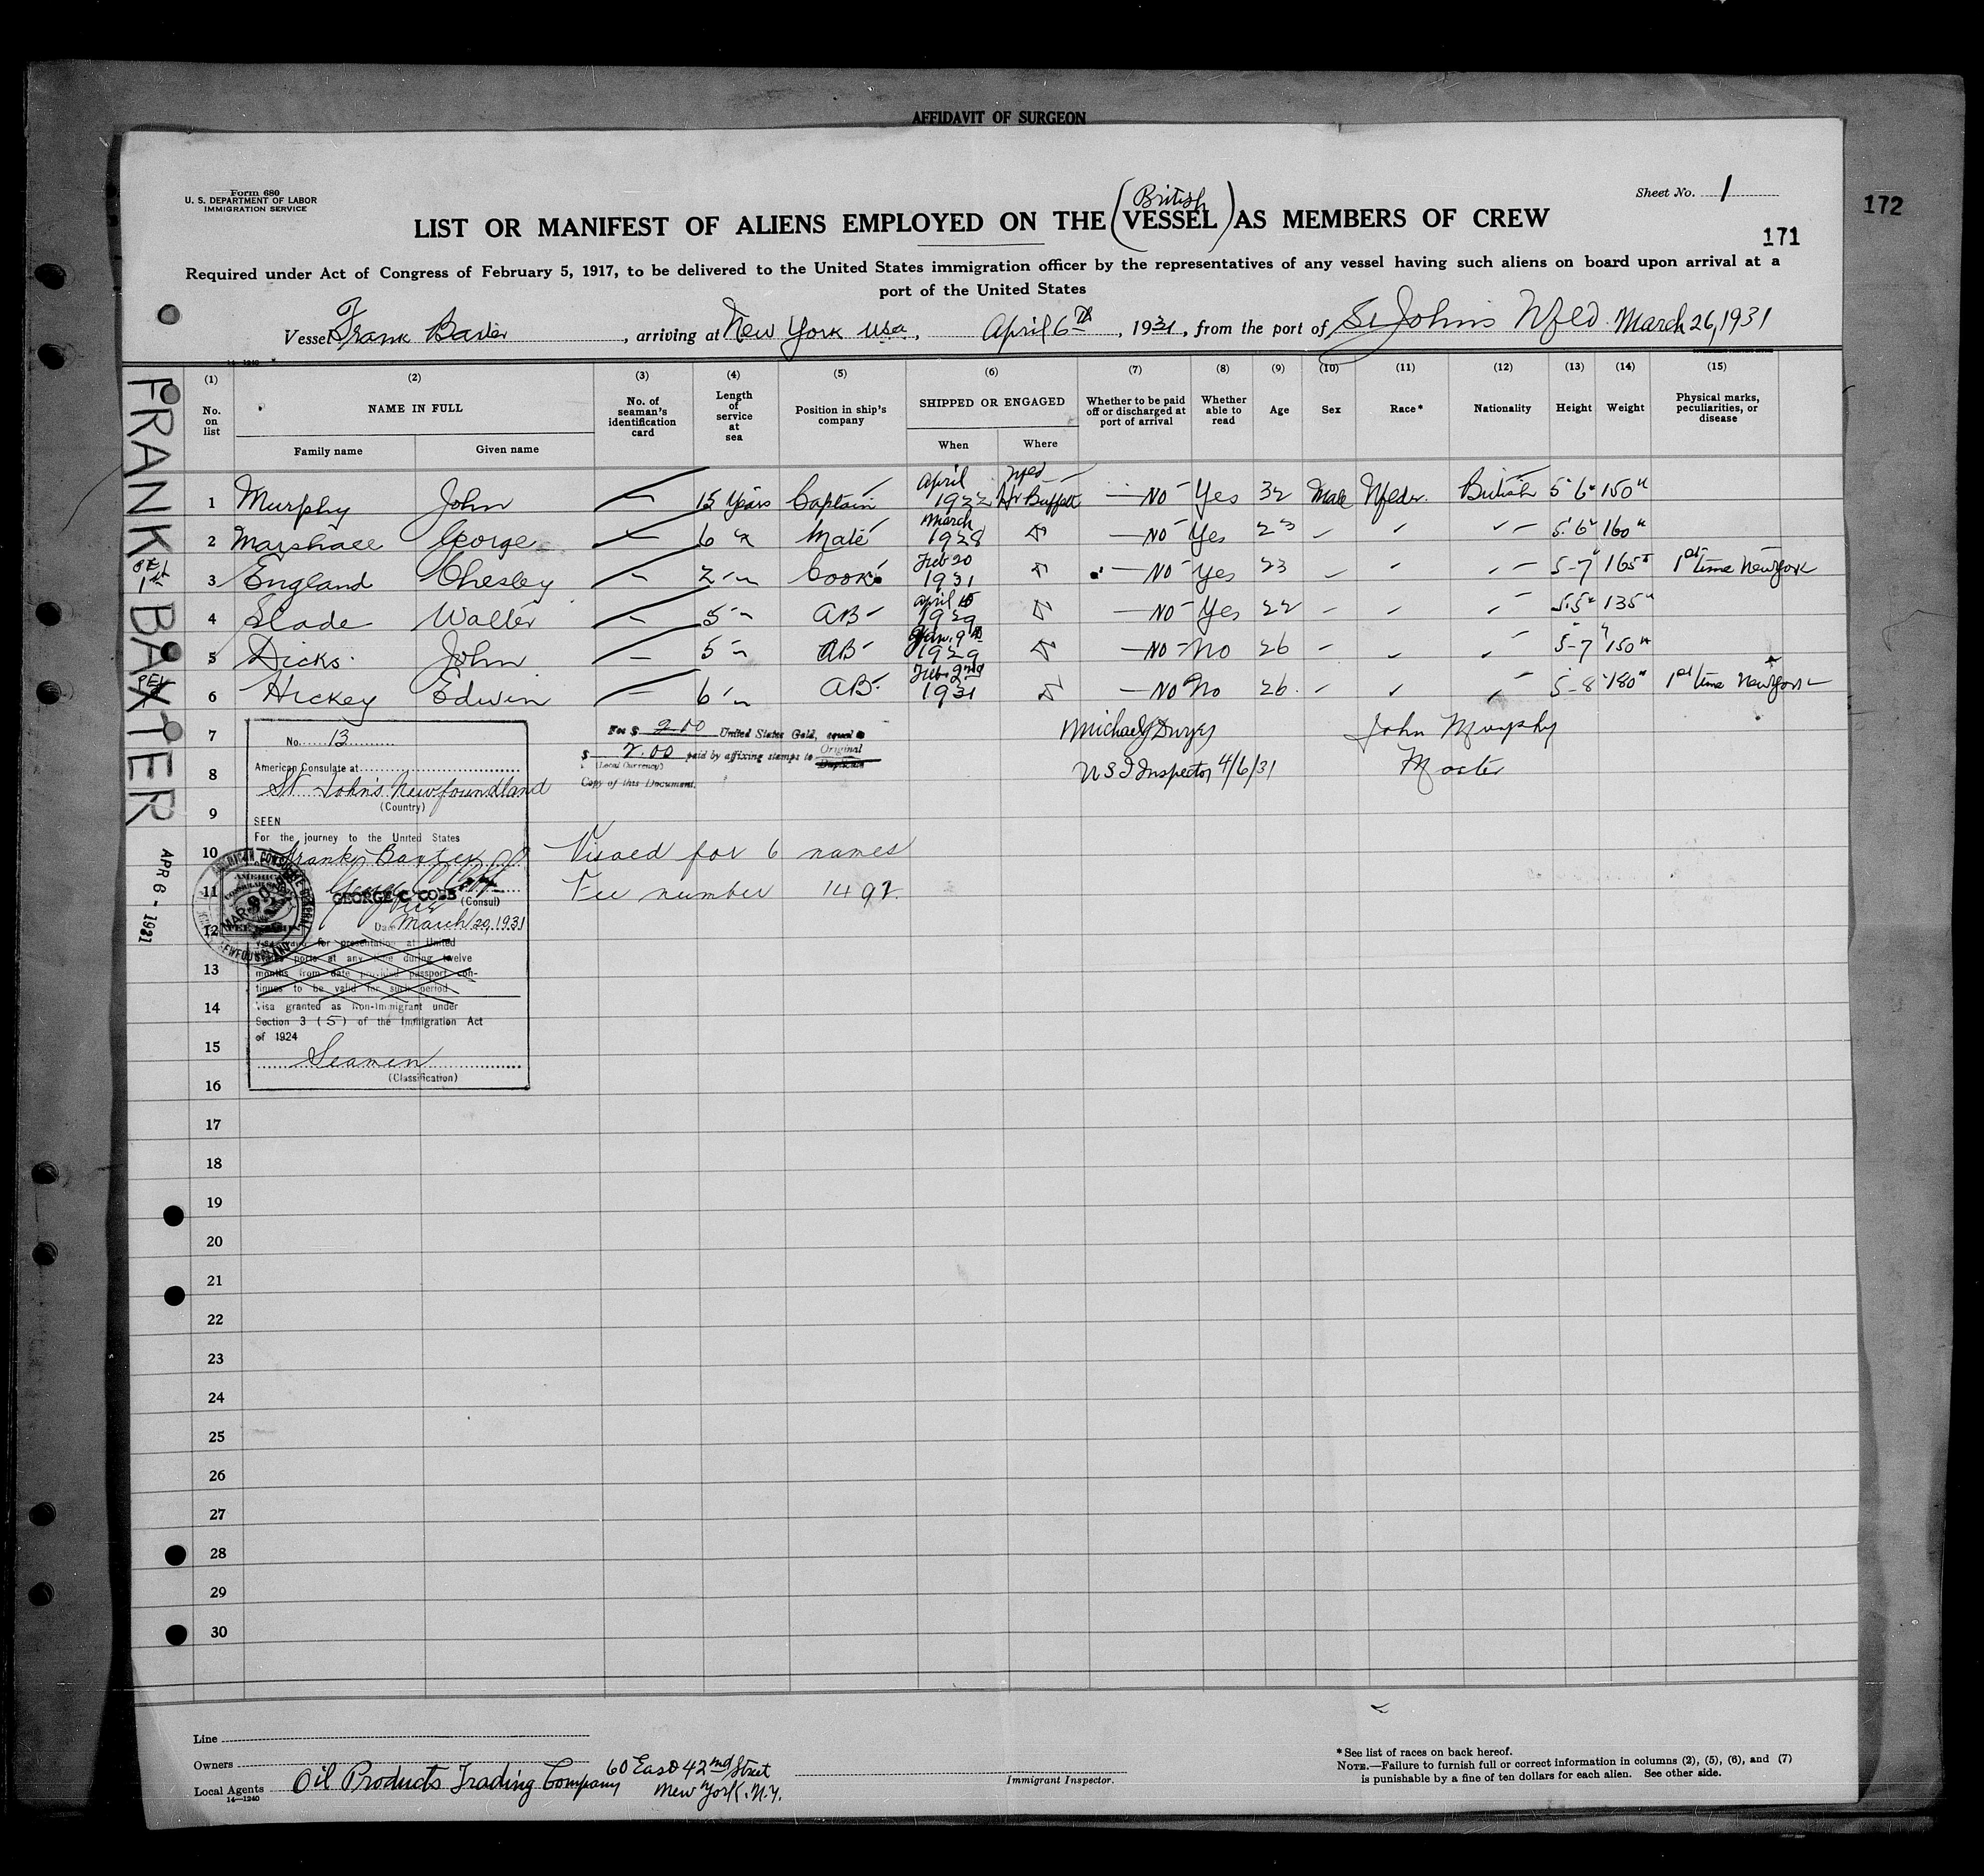 AFFIDAVIT OF SURGEON
Form 680
U. S. DEPARTMENT OF LABOR
IMMIGRATION SERVICE
Sheet No. 1
172
171
LIST OR MANIFEST OF ALIENS EMPLOYED ON THE (British VESSEL) AS MEMBERS OF CREW
Required under Act of Congress of February 5, 1917, to be delivered to the United States immigration officer by the representatives of any vessel having such aliens on board upon arrival at a
port of the United States
Vessel Frank Baxter, arriving at New York usa, April 6th, 1931, from the port of St Johns Nfld. March 26, 1931
FRANK BAXTER
APR 6 - 1931
(1) (2) (3) (4) (5) (6) (7) (8) (9) (10) (11) (12) (13) (14) (15)
No. on list
NAME IN FULL
Family name
Given name
No. of seaman's identification card
Length of service at sea
Position in ship's company
SHIPPED OR ENGAGED
When
Where
Whether to be paid off or discharged at port of arrival
Whether able to read
Age
Sex
Race*
Nationality
Height
Weight
Physical marks, peculiarities, or disease
1 Murphy John — 15 Years Captain April 1922 Nfld Hr Buffett — No Yes 32 Male Nflder. British 5'6" 150"
2 Marshall George — 6 " Mate March 1928 " — No Yes 23 " " " 5'6" 160"
3 England Chesley — 2 " Cook Feb 20 1931 " — No Yes 23 " " " 5-7" 165" 1st time New York
4 Slade Walter — 5 " AB April 15 1929 " — No Yes 22 " " " 5'5" 135"
5 Dicks John — 5 " AB Jan. 9th 1929 " — No No 26 " " " 5-7" 150"
6 Hickey Edwin — 6 " AB Feb. 2nd 1931 " — No No 26 " " " 5-8" 180" 1st time New York
7
8
9
10
11
12
13
14
15
16
17
18
19
20
21
22
23
24
25
26
27
28
29
30
No. 13
American Consulate at
St. John's Newfoundland
(Country)
SEEN
For the journey to the United States
Frank Baxter
GEORGE C COBB (Consul)
Vice
Date March 20, 1931
Visa valid for presentation at United
States ports at any time during twelve
months from date provided passport con-
tinues to be valid for such period
Visa granted as Non-Immigrant under
Section 3 (5) of the Immigration Act
of 1924
Seamen
(Classification)
Fee $ 2.00 United States Gold, equal to
$ 2.00 paid by affixing stamps to Original Duplicate
(Local Currency)
Copy of this Document.
Michael J Dwyer
U S I Inspector 4/6/31
John Murphy
Master
Visaed for 6 names
Fee number 1492
Line
Owners
Local Agents Oil Products Trading Company 60 East 42nd Street
New York. N.Y.
14—1240
Immigrant Inspector.
* See list of races on back hereof.
NOTE.—Failure to furnish full or correct information in columns (2), (5), (6), and (7)
is punishable by a fine of ten dollars for each alien. See other side.